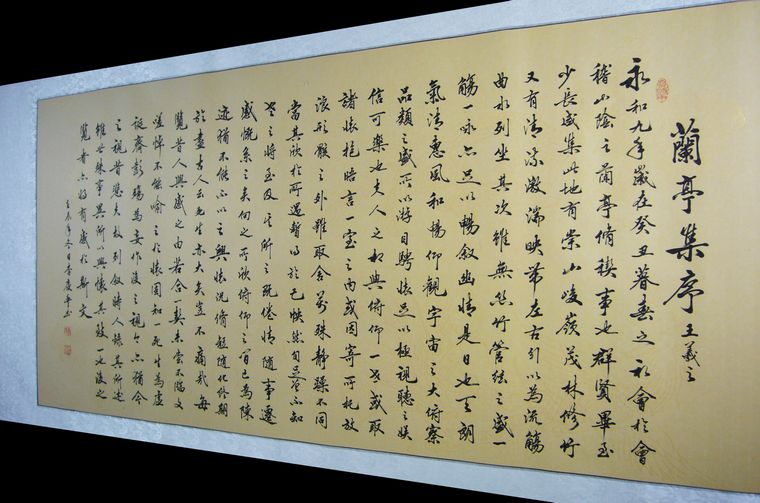 蘭亭集序 王羲之
永和九年歲在癸丑暮春之初會於會
稽山陰之蘭亭脩稧事也群賢畢至
少長咸集此地有崇山峻嶺茂林修竹
又有清流激湍映帶左右引以為流觴
曲水列坐其次雖無絲竹管弦之盛一
觴一詠亦足以暢敘幽情是日也天朗
氣清惠風和暢仰觀宇宙之大俯察
品類之盛所以遊目騁懷足以極視聽之娛
信可樂也夫人之相與俯仰一世或取
諸懷抱晤言一室之內或因寄所托放
浪形骸之外雖取舍萬殊靜躁不同
當其欣於所遇暫得於己快然自足曾不知
老之將至及其所之既倦情隨事遷
感慨系之矣向之所欣俯仰之間已為陳
跡猶不能不以之興懷況脩短隨化終期
於盡古人云死生亦大矣豈不痛哉每
覽昔人興感之由若合一契未嘗不臨文
嗟悼不能喻之於懷固知一死生為虛
誕齊彭殤為妄作後之視今亦猶今
之視昔悲夫故列敘時人錄其所述
雖世殊事異所以興懷其致一也後之
覽者亦將有感於斯文
壬辰年冬日李慶平書